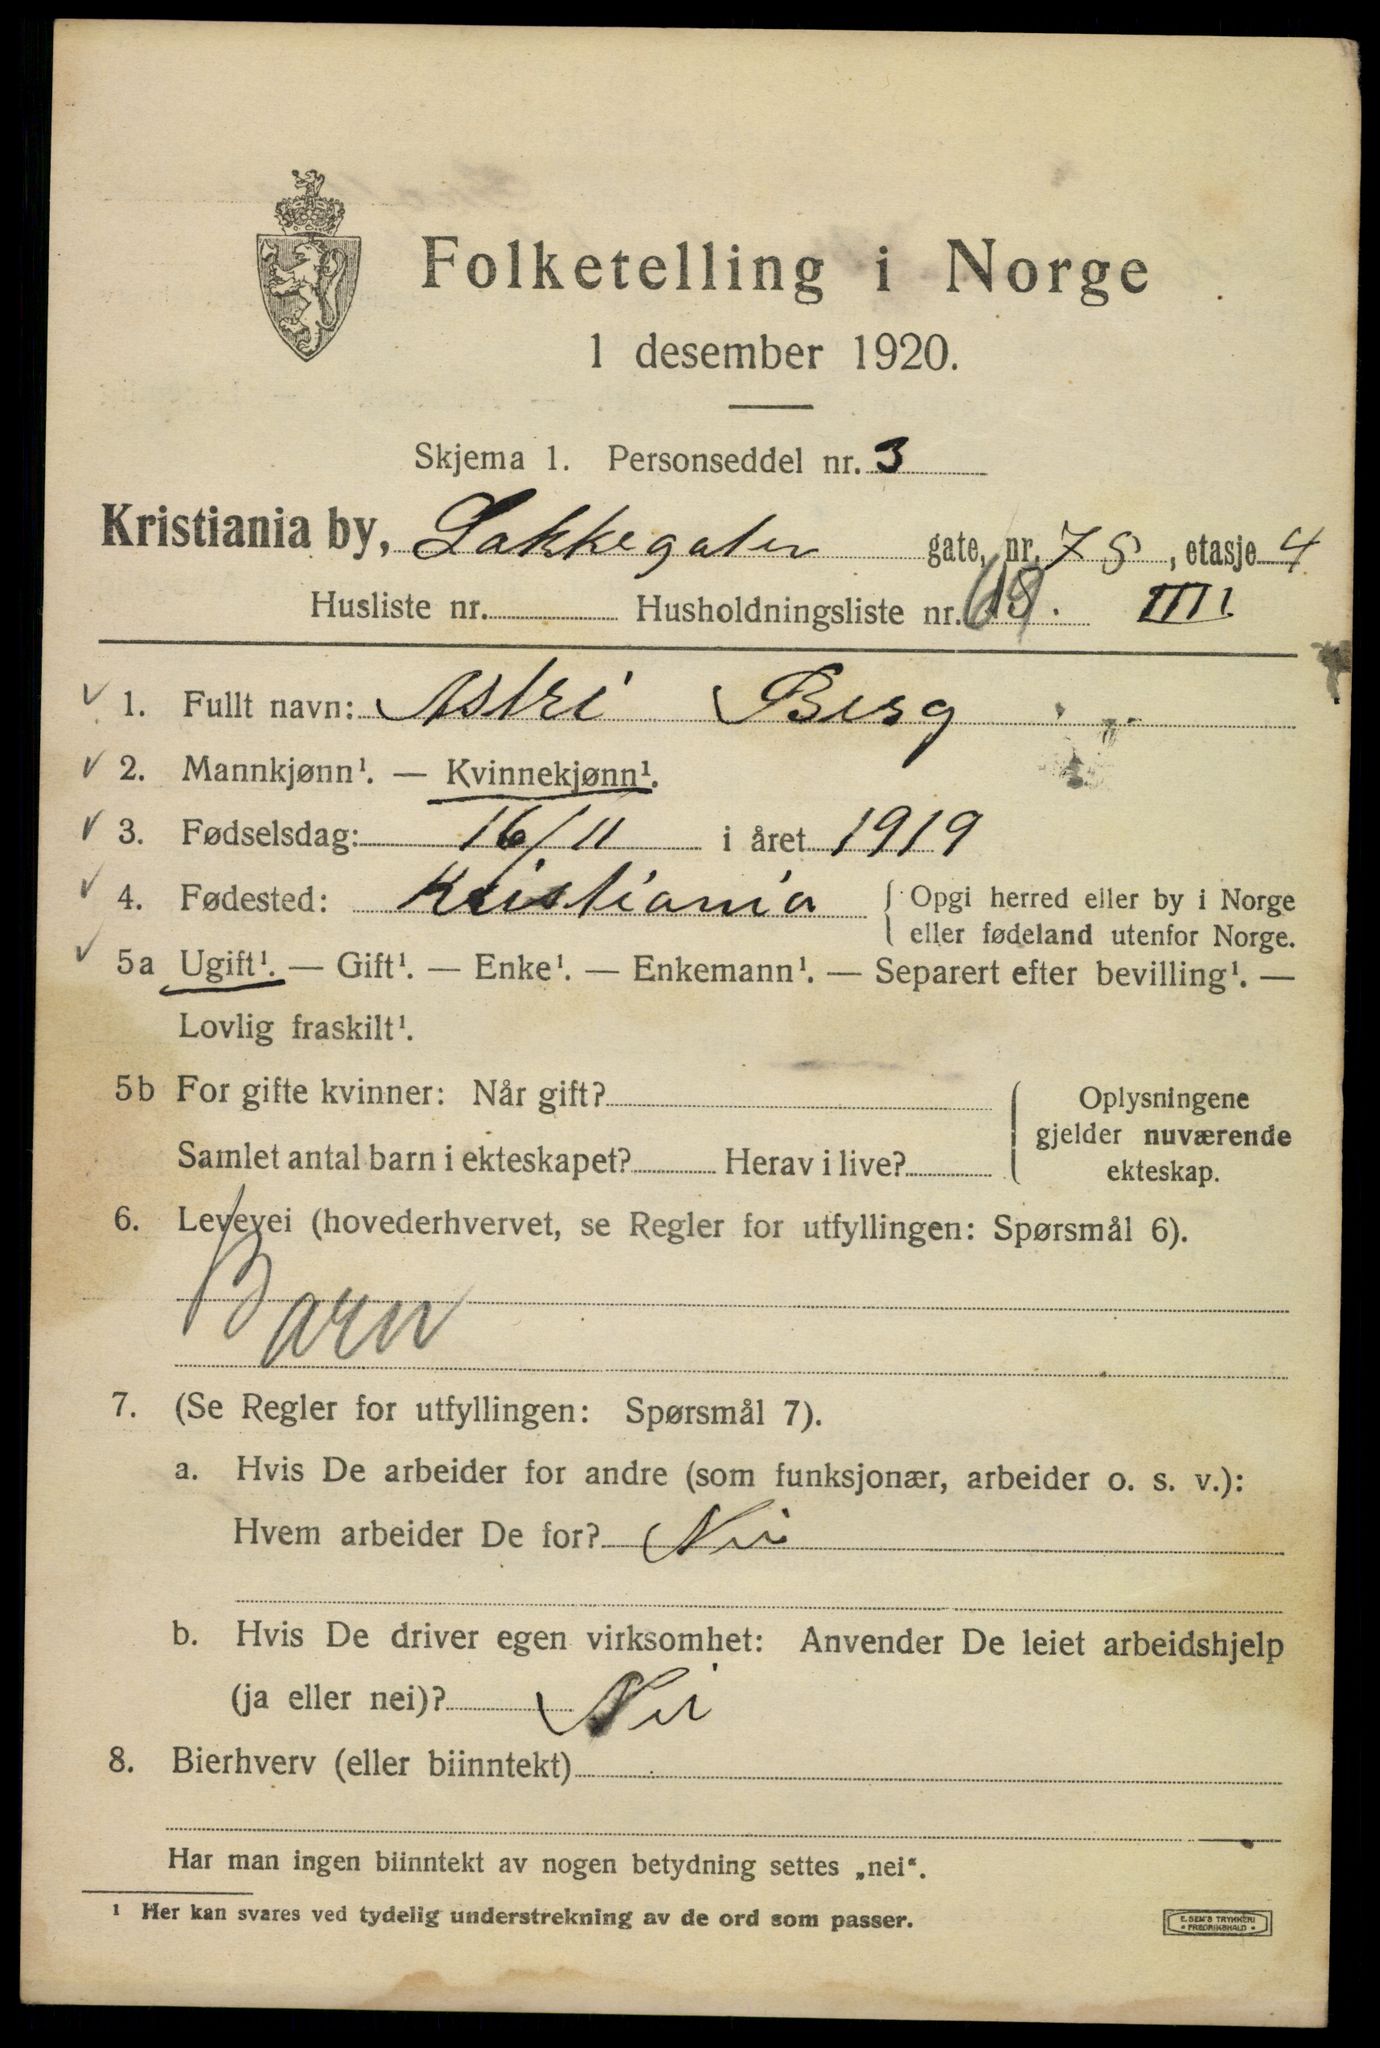 Folketelling i Norge
1 desember 1920.
Skjema 1. Personseddel nr. 3
Kristiania by, Lakkegaten gate, nr. 78, etasje 4
Husliste nr. Husholdningsliste nr. IIII
1. Fullt navn: Astri Berg
2. Mannkjønn¹. — Kvinnekjønn¹.
3. Fødselsdag: 16/11 i året 1919
4. Fødested: Kristiania { Opgi herred eller by i Norge
eller fødeland utenfor Norge.
5a Ugift¹. — Gift¹. — Enke¹. — Enkemann¹. — Separert efter bevilling¹. —
Lovlig fraskilt¹.
5b For gifte kvinner: Når gift?
Samlet antal barn i ekteskapet? Herav i live?
Oplysningene
gjelder nuværende
ekteskap.
6. Levevei (hovederhvervet, se Regler for utfyllingen: Spørsmål 6).
Barn
7. (Se Regler for utfyllingen: Spørsmål 7).
a. Hvis De arbeider for andre (som funksjonær, arbeider o. s. v.):
Hvem arbeider De for? Nei
b. Hvis De driver egen virksomhet: Anvender De leiet arbeidshjelp
(ja eller nei)? Nei
8. Bierhverv (eller biinntekt)
Har man ingen biinntekt av nogen betydning settes „nei“.
¹ Her kan svares ved tydelig understrekning av de ord som passer.
E. SEM'S TRYKKERI
• FREDRIKSHALD •